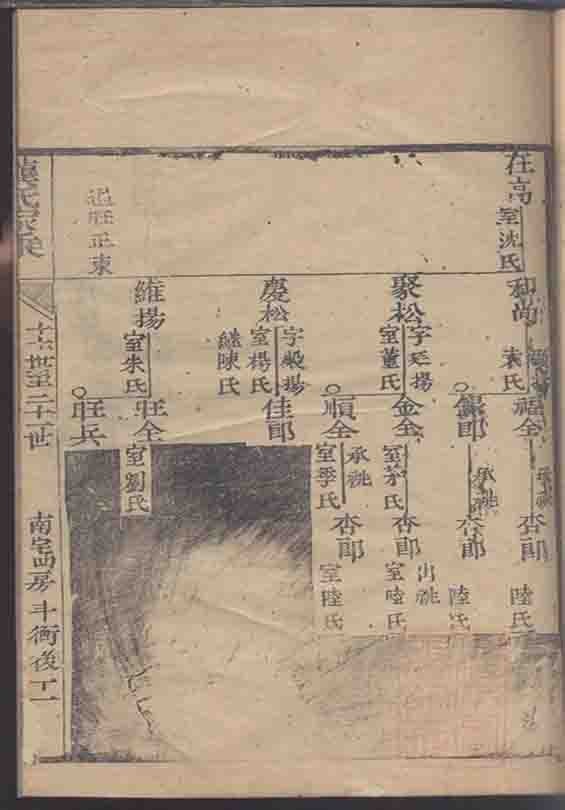 在高
室沈氏
和尚
袁氏
福全
承祧
杏郎
陸氏
銀郎
承祧
杏郎
陸氏
聚松
字廷揚
室董氏
金全
室茅氏
杏郎
出祧
室陸氏
順全
承祧
室季氏
杏郎
室陸氏
慶松
字殿揚
室楊氏
繼陳氏
佳郎
維揚
室朱氏
旺全
室劉氏
旺兵
過旺正東
氏家乘
十六世至二十一世
南宅四房斗衡後